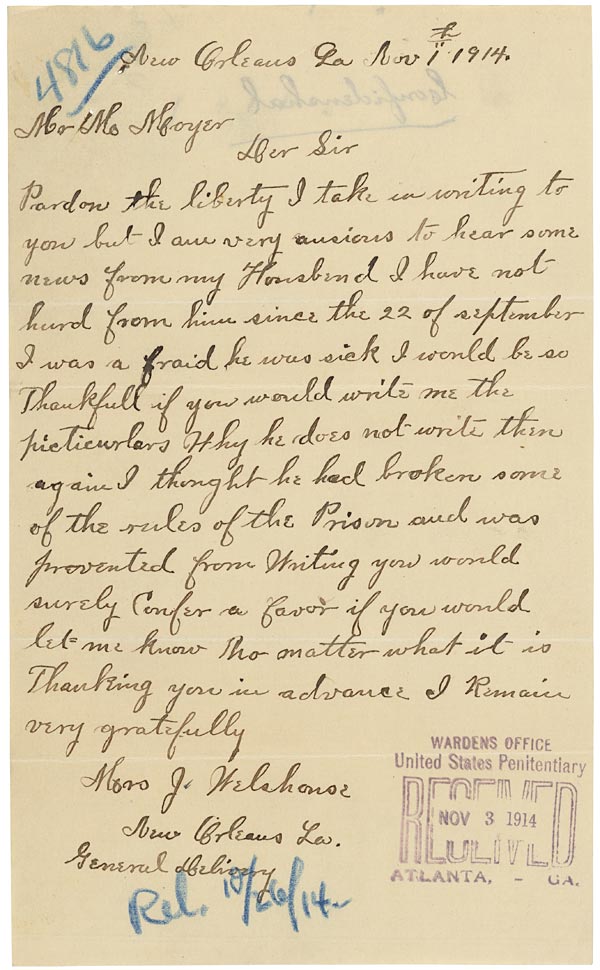 4816
New Orleans La Nov 1th 1914.
Confidenshal
Mr Mo Moyer
Der Sir
Pardon the liberty I take in writing to
you but I am very ansious to hear some
news from my Housbend I have not
hurd from him since the 22 of september
I was a fraid he was sick I would be so
Thankfull if you would write me the
picticurlars Why he does not write then
again I thought he had broken some
of the rules of the Prison and was
provented from Writing you would
surely Confer a favor if you would
let me know Tho matter what it is
Thanking you in advance I Remain
very gratefully
Mrs J. Welshouse
New Orleans La.
General Delivery
Rel. 10/26/14-
WARDENS OFFICE
United States Penitentiary
RECEIVED
NOV 3 1914
ATLANTA, - GA.